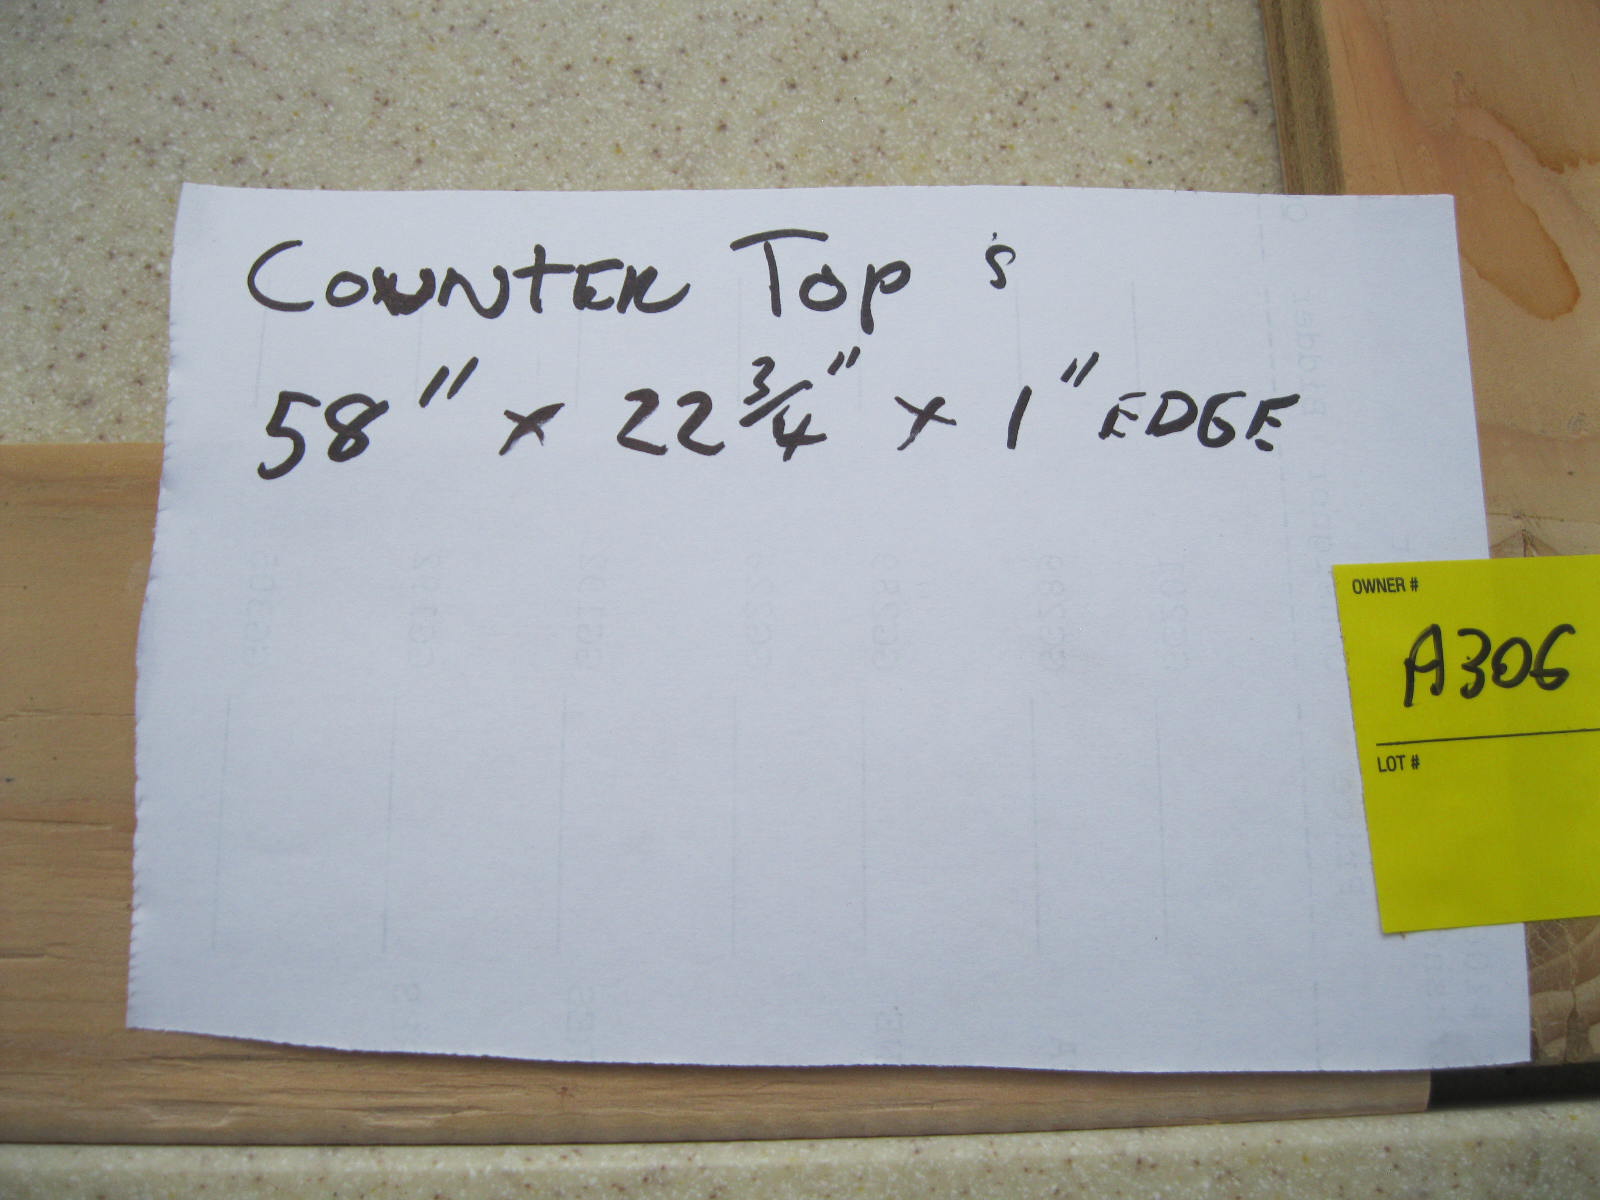 COUNTER TOP 's
58" x 22 3/4" x 1" EDGE
OWNER #
A306
LOT #